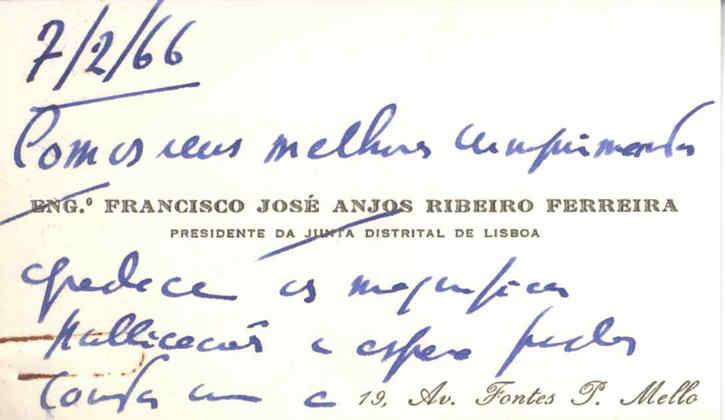 7/2/66
Com os seus melhores cumprimentos
ENG.º FRANCISCO JOSÉ ANJOS RIBEIRO FERREIRA
PRESIDENTE DA JUNTA DISTRITAL DE LISBOA
agradece as magníficas
publicações e espera poder
contar com a
19, Av. Fontes P. Mello